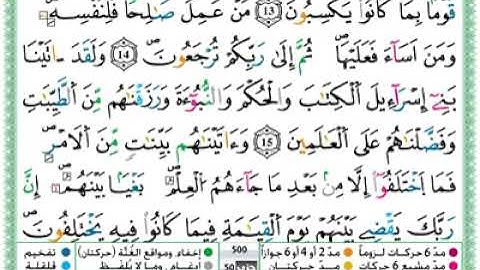 قَوْمًۢا بِمَا كَانُوا۟ يَكْسِبُونَ ۝13 مَنْ عَمِلَ صَٰلِحًا فَلِنَفْسِهِۦ ۖ
وَمَنْ أَسَآءَ فَعَلَيْهَا ۖ ثُمَّ إِلَىٰ رَبِّكُمْ تُرْجَعُونَ ۝14 وَلَقَدْ ءَاتَيْنَا
بَنِىٓ إِسْرَٰٓءِيلَ ٱلْكِتَٰبَ وَٱلْحُكْمَ وَٱلنُّبُوَّةَ وَرَزَقْنَٰهُم مِّنَ ٱلطَّيِّبَٰتِ
وَفَضَّلْنَٰهُمْ عَلَى ٱلْعَٰلَمِينَ ۝15 وَءَاتَيْنَٰهُم بَيِّنَٰتٍ مِّنَ ٱلْأَمْرِ ۖ
فَمَا ٱخْتَلَفُوٓا۟ إِلَّا مِنۢ بَعْدِ مَا جَآءَهُمُ ٱلْعِلْمُ بَغْيًۢا بَيْنَهُمْ ۚ إِنَّ
رَبَّكَ يَقْضِى بَيْنَهُمْ يَوْمَ ٱلْقِيَٰمَةِ فِيمَا كَانُوا۟ فِيهِ يَخْتَلِفُونَ
مدّ 6 حركات لزوماً مدّ 2 أو 4 أو 6 جوازاً 500 إخفاء، ومواقع الغُنَّة (حركتان) تفخيم
مدّ مشبع 6 حركات مدّ حركتان إدغام، وما لا يُلفَظ قلقلة